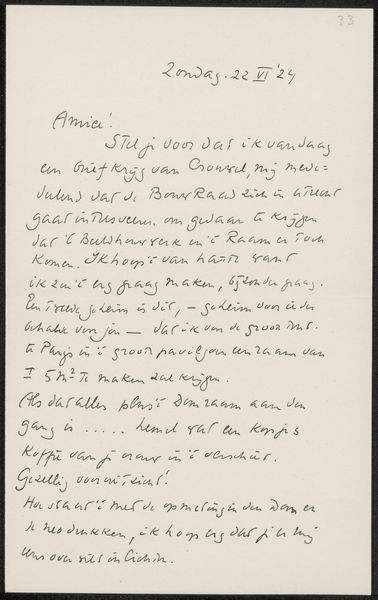 33
Zondag. 22 VI '24
Amici!
Stel je voor dat ik vandaag
een brief krijg van Crouwel, mij mede=
delend dat de Bouw Raad zich in Utrecht
gaat om gedaan te krijgen
dat 't Beeldhouwwerk in 't Raam er toch
komen. Ik hoop 't van harte want
ik zou 't erg graag maken, bijzonder graag.
Een tweede geheim is dit, – geheim voor ieder
behalve voor jou – dat ik van de groote
te Parijs in 't groot paviljoen een raam van
I 5 m² te maken zal krijgen.
Als dat alles plus 't Domraam aan den
gang is ..... hemel wat een kopjes
koffie van je vrouw in 't verschiet.
Gezellig vooruitzicht!
Hoe staat 't met de opmeting in den Dom en
de neodrukken, ik hoop erg dat je er mij
eens over wilt inlichten.